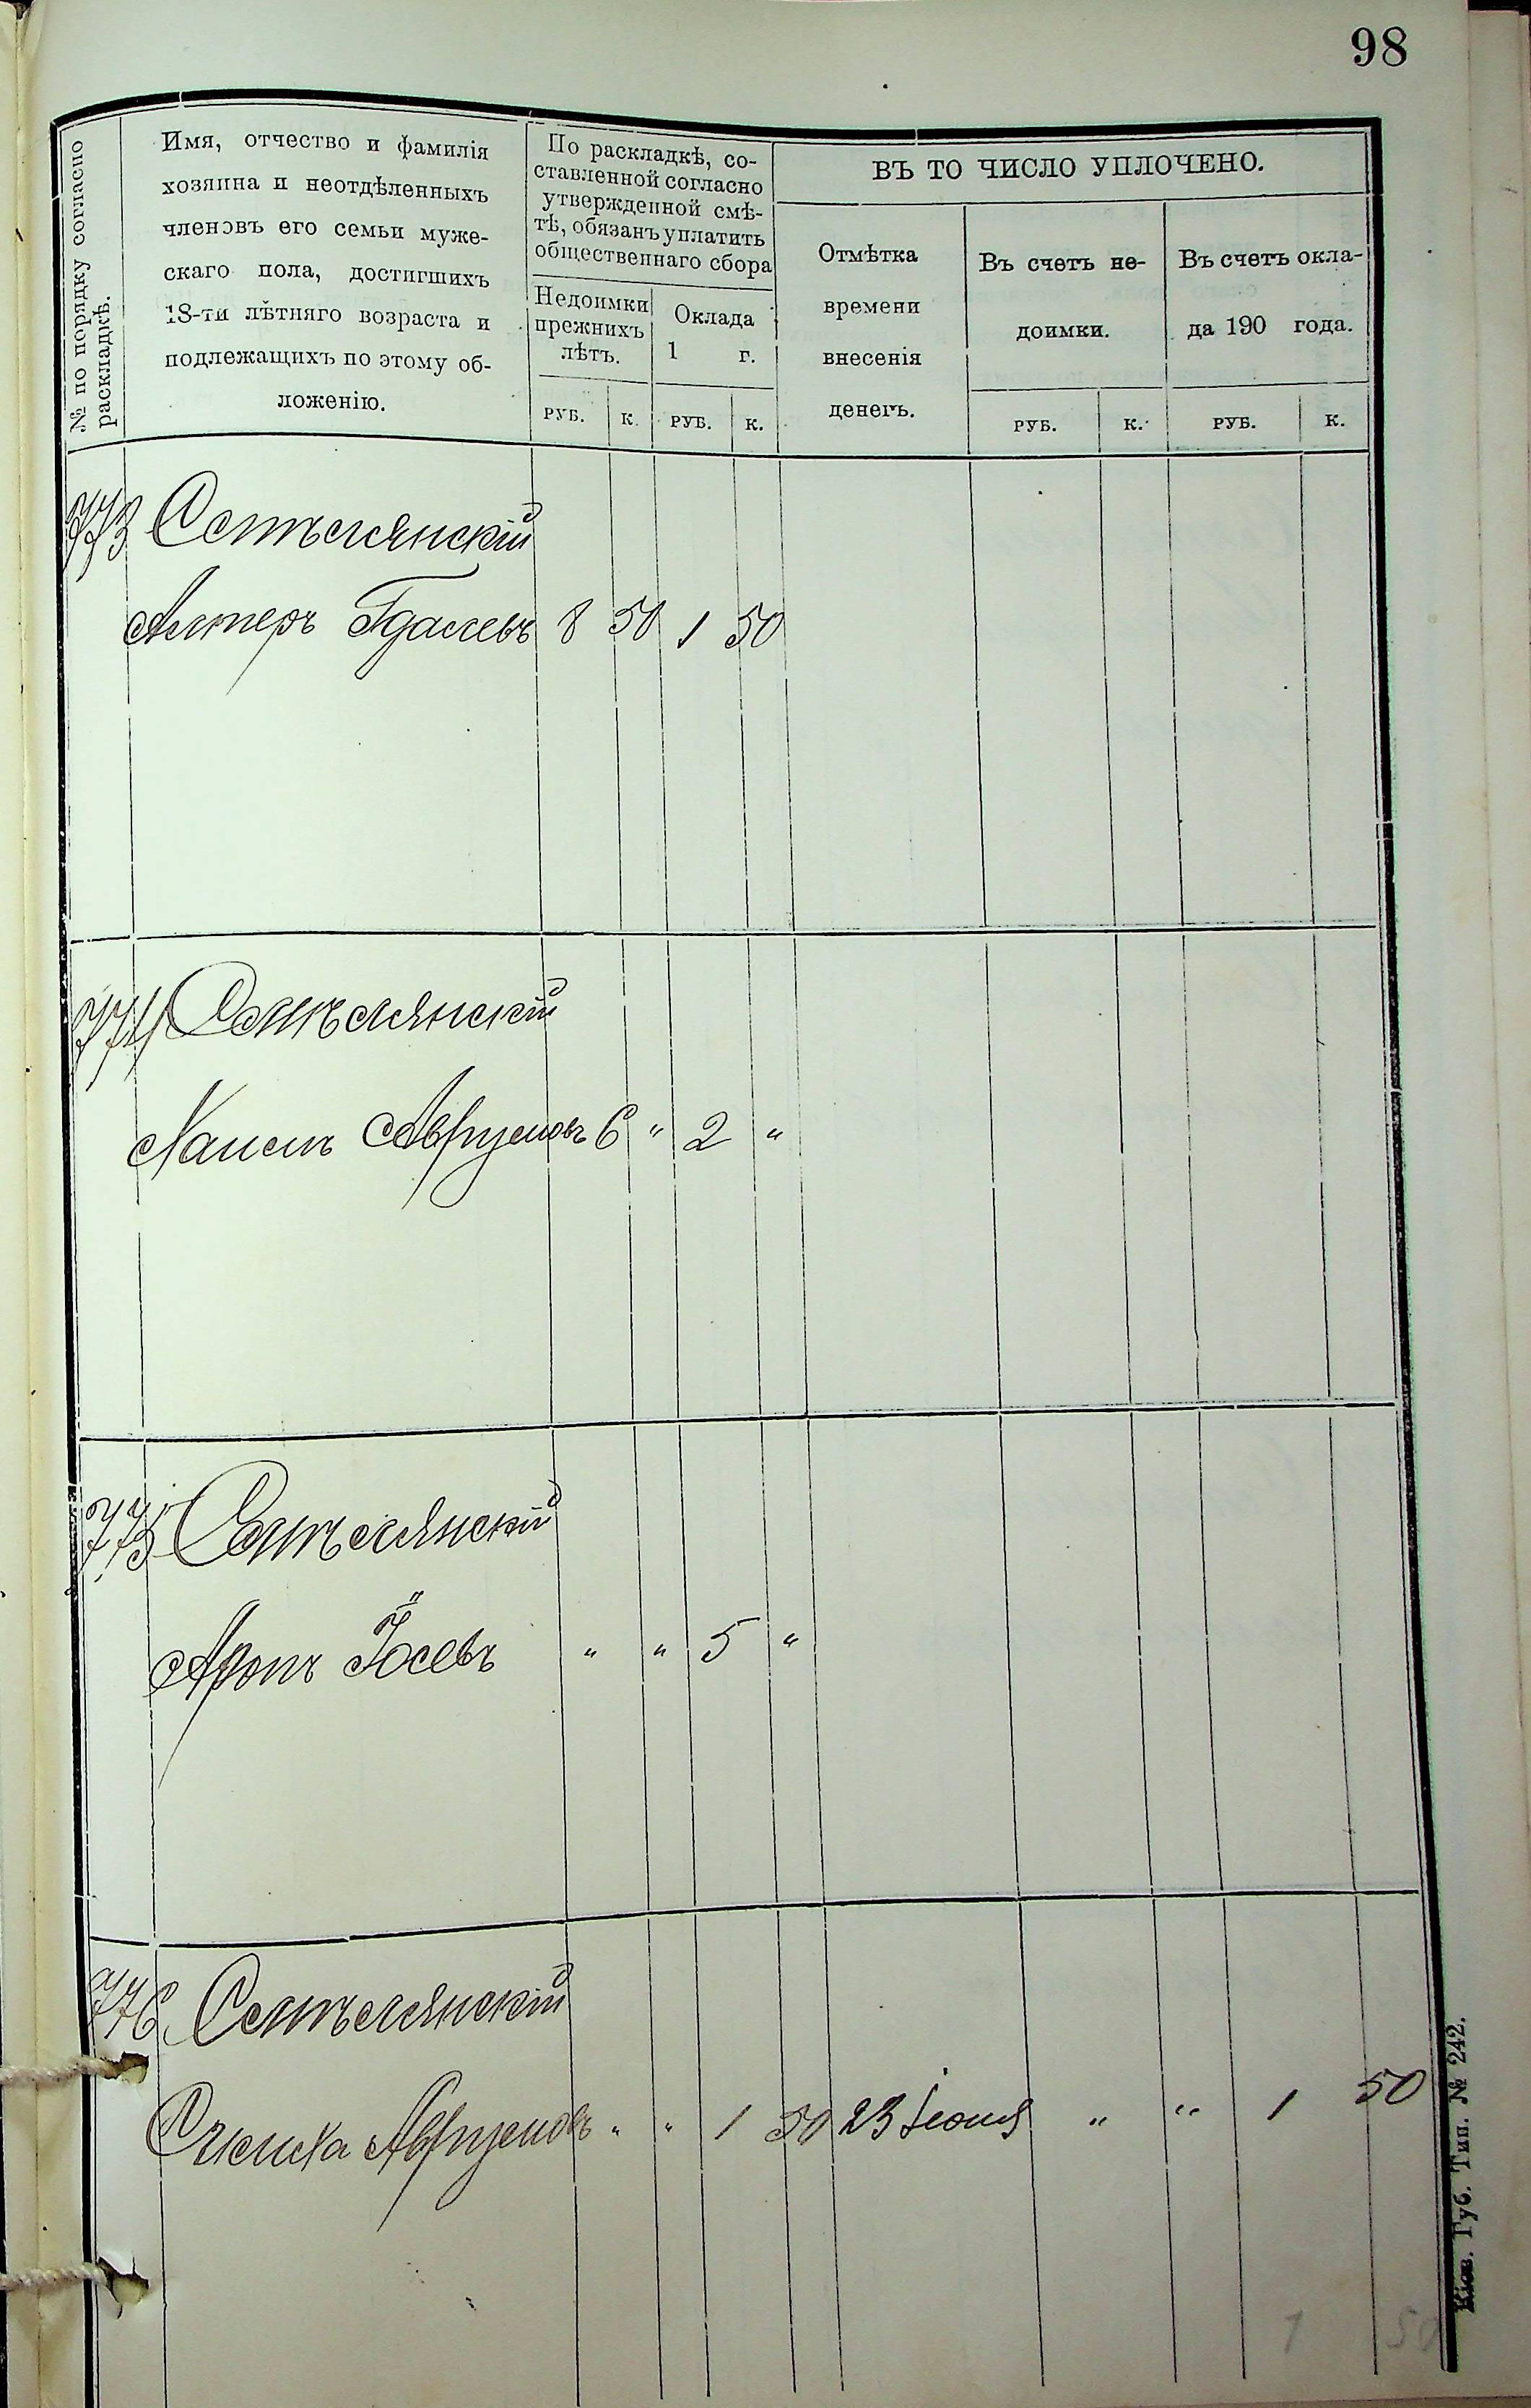 98
№ по порядку согласно
раскладкѣ.
Имя, отчество и фамилія
хозяина и неотдѣленныхъ
членовъ его семьи муже-
скаго пола, достигшихъ
18-ти лѣтняго возраста и
подлежащихъ по этому об-
ложенію.
По раскладкѣ, со-
ставленной согласно
утвержденной смѣ-
тѣ, обязанъ уплатить
общественнаго сбора
Недоимки
прежнихъ
лѣтъ.
Оклада
1 г.
ВЪ ТО ЧИСЛО УПЛОЧЕНО.
Отмѣтка
времени
внесенія
денегъ.
Въ счетъ не-
доимки.
Въ счетъ окла-
да 190 года.
РУБ. К. РУБ. К. РУБ. К. РУБ. К.
773 Сетъ­лянскій
Алтеръ Гдалевъ 8 50 1 50
774 Сетълянскій
Хаимъ Аврумовъ 6 " 2 "
775 Сетълянскій
Аронъ Іосевъ " " 5 "
776 Сетълянскій
Аврумовъ " " 1 50 23 Іюня " " 1 50
1 50
Кіев. Губ. Тип. № 242.